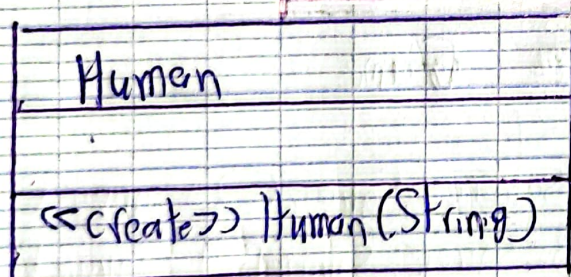 Human
<<create>> Human(String)